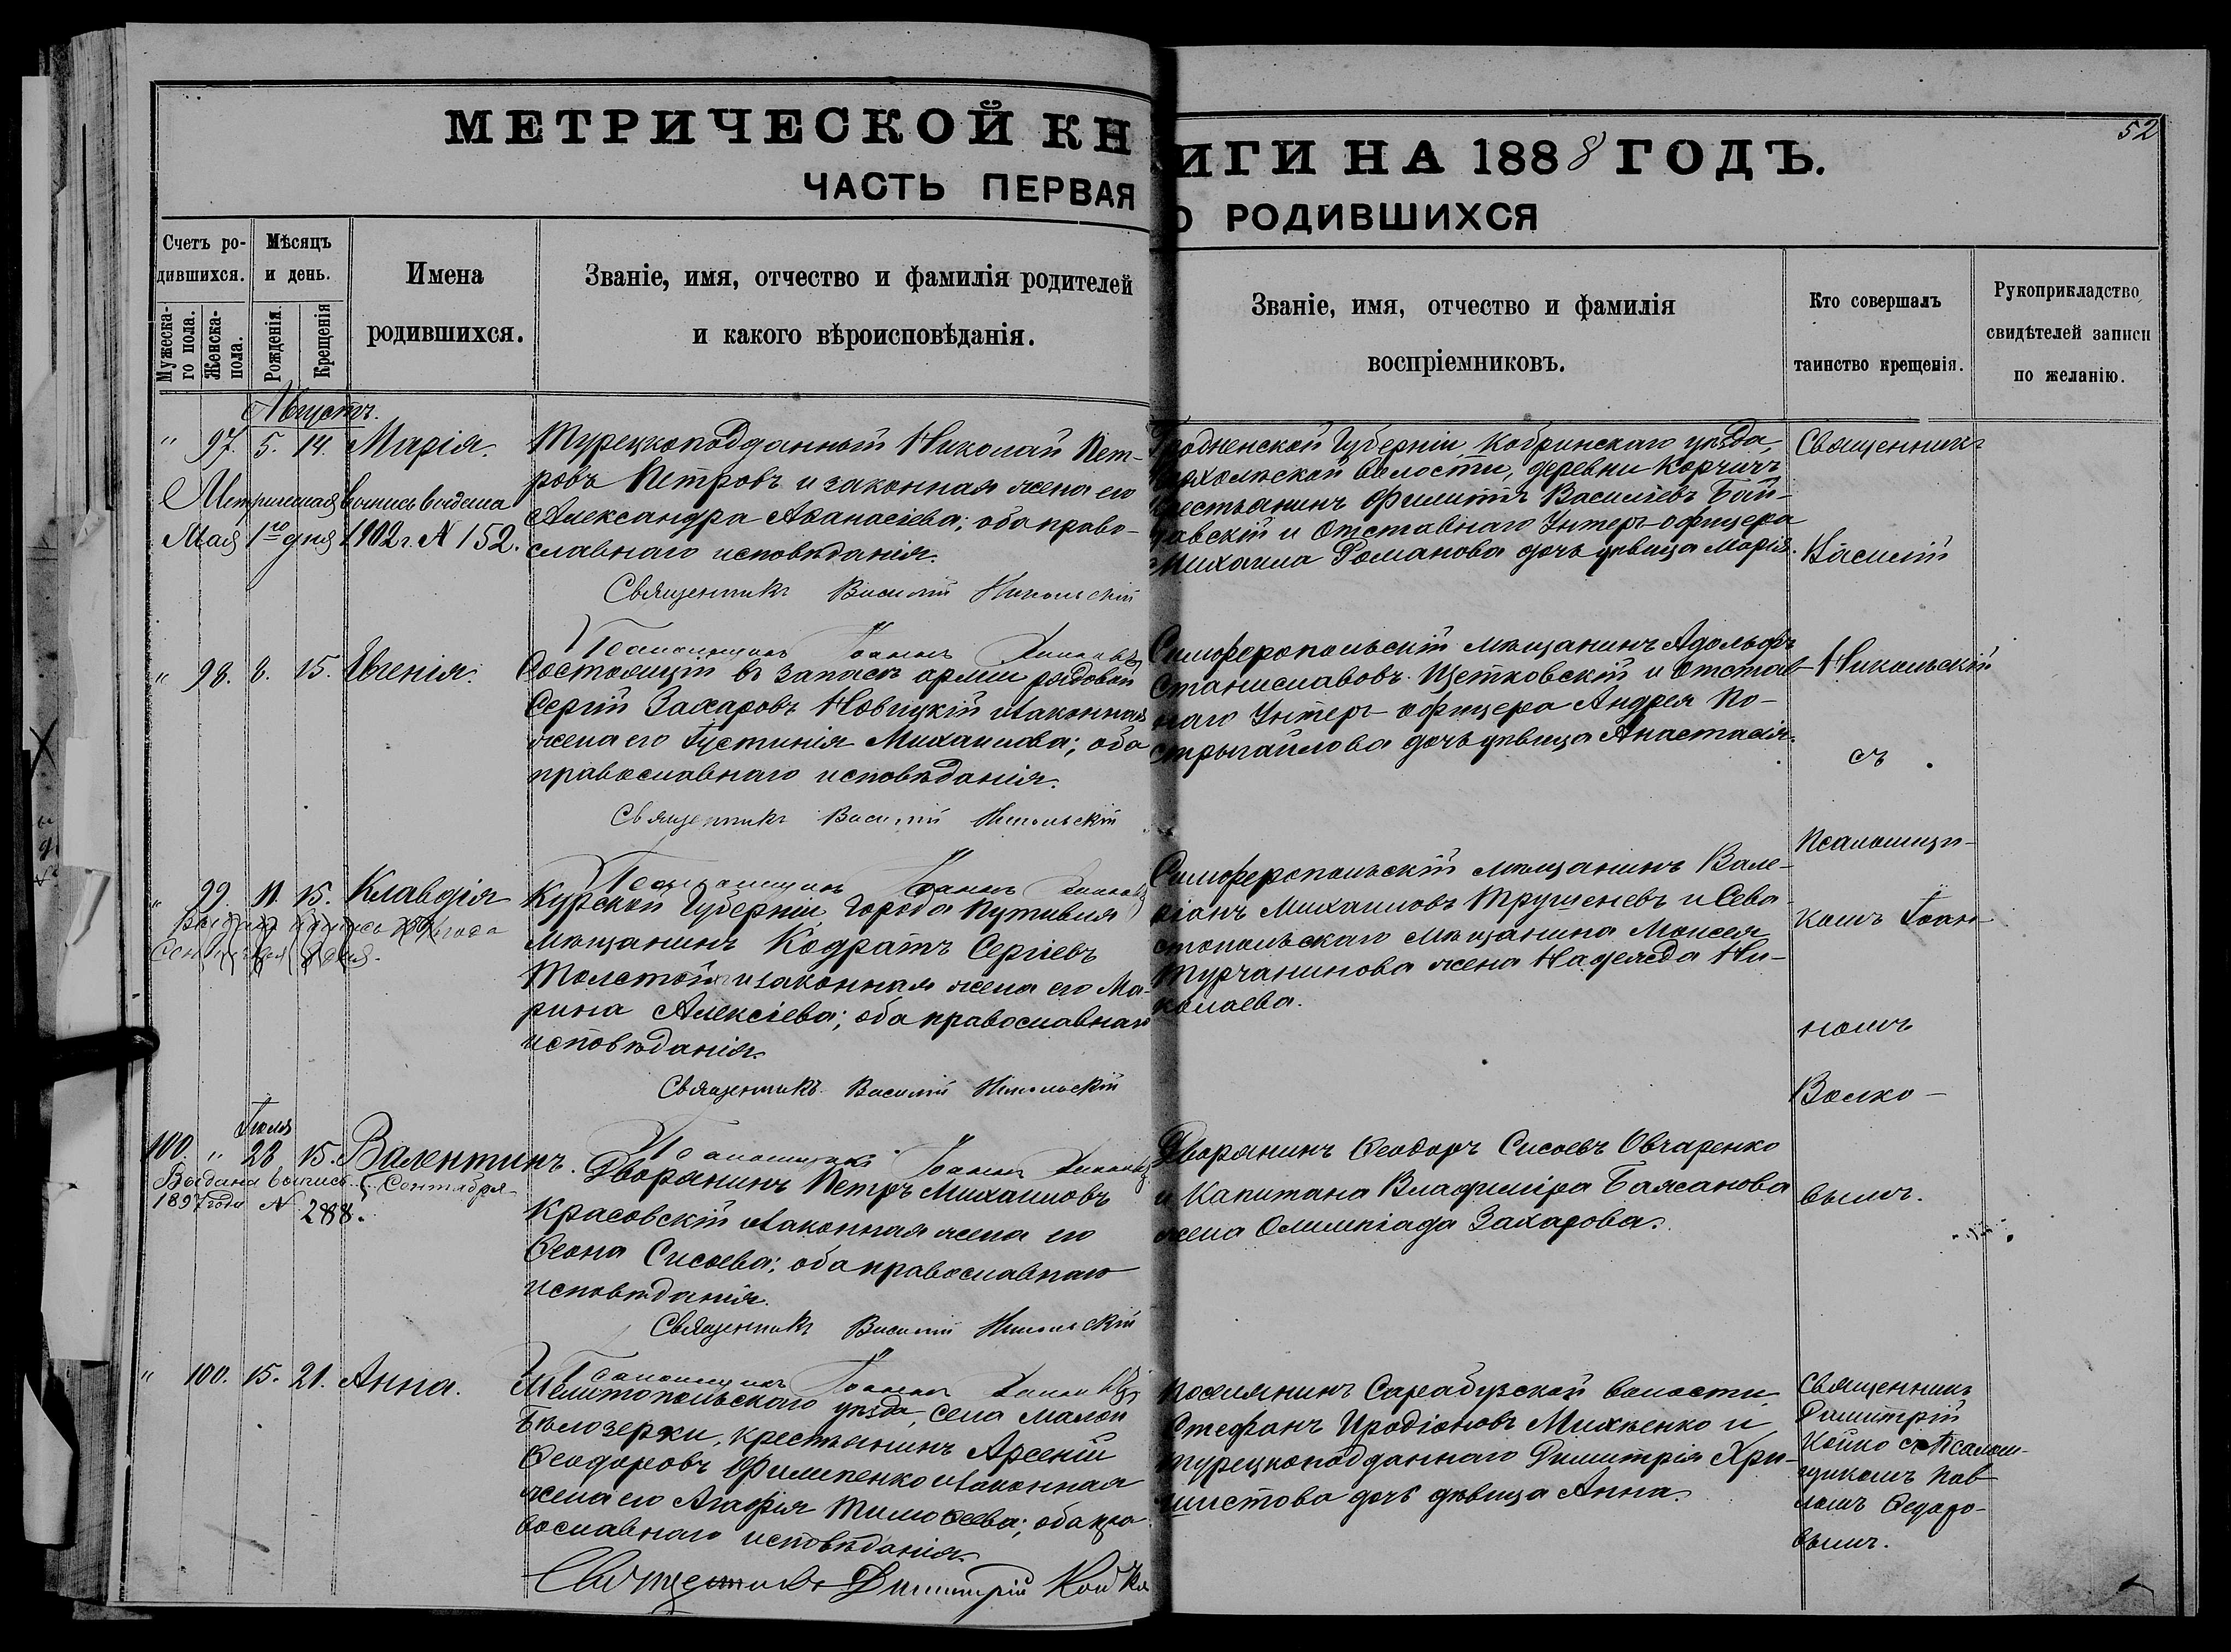 МЕТРИЧЕСКОЙ КН
ИГИ НА 1888 ГОДЪ.
52
ЧАСТЬ ПЕРВАЯ
О РОДИВШИХСЯ
Счетъ ро-
дившихся.
Мужеска-
го пола.
Женска-
пола.
Мѣсяцъ
и день.
Рожденія.
Крещенія
Имена
родившихся.
Званіе, имя, отчество и фамилія родителей
и какого вѣроисповѣданія.
Званіе, имя, отчество и фамилія
воспріемниковъ.
Кто совершалъ
таинство крещенія.
Рукоприкладство
свидѣтелей записи
по желанію.
Августъ.
" 97. 5. 14. Марія.
Метрическая выпись выдана
Мая 1го дня 1902 г. № 152.
Турецкоподданный Николай Пет-
ровъ Петровъ и законная жена его
Александра Аѳанасіева; оба право-
славнаго исповѣданія.
Священникъ Василій Никольскій
Псаломщикъ Іоаннъ
Гродненской Губерніи, Кобринскаго уѣзда,
волости, деревни Корчичъ
крестьянинъ Филиппъ Василіевъ
и Отставнаго Унтеръ-офицера
Михаила Романова дочь дѣвица Марія.
" 98. 8. 15. Евгенія.
Состоящій въ запасѣ арміи рядовой
Сергій Захаровъ Новицкій и законная
жена его Іустинія Михаилова; оба
православнаго исповѣданія.
Священникъ Василій Никольскій
Псаломщикъ Іоаннъ
Симферопольскій мѣщанинъ Адольфъ
Станиславовъ Щетковскій и Отстав-
наго Унтеръ-офицера Андрея По-
стрыгайлова дочь дѣвица Анастасія.
" 99. 11. 15. Клавдія
Выдана выпись года
Сентября дня.
Курской Губерніи города Путивля
мѣщанинъ Кодратъ Сергіевъ
Толстой и законная жена его Ма-
рина Алексіева; оба православнаго
исповѣданія.
Священникъ Василій Никольскій
Псаломщикъ Іоаннъ
Симферопольскій мѣщанинъ Вале-
ріанъ Михаиловъ Трушеневъ и Сева-
стопольскаго мѣщанина Моисея
Турчанинова жена Надежда Ни-
колаева.
Іюля
100. " 28 15. Валентинъ.
Выдана выпись Сентября
1897 года № 288.
Дворянинъ Петръ Михаиловъ
Красовскій и законная жена его
Ѳеона Сисоева; оба православнаго
исповѣданія.
Священникъ Василій Никольскій
Псаломщикъ Іоаннъ
Дворянинъ Ѳеодоръ Сисоевъ Овчаренко
и Капитана Владиміра Баясанова
жена Олимпіада Захарова.
Священникъ
Василій
Никольскій
съ
псаломщи-
комъ Іоан-
номъ
Волко-
вымъ.
" 100. 15. 21. Анна.
Мелитопольскаго уѣзда, села Малой
Бѣлозерки, крестьянинъ Арсеній
Ѳеодоровъ Филипенко и законная
жена его Агафія Тимоѳеева; оба пра-
вославнаго исповѣданія.
Священникъ Димитрій Койко
Поселянинъ Сарабузской волости,
Стефанъ Иродіоновъ Михѣенко и
турецкоподданнаго Димитрія Хри-
дочь дѣвица Анна.
Священникъ
Димитрій
Койко съ псалом-
щикомъ Пав-
ломъ Ѳедоро-
вымъ.